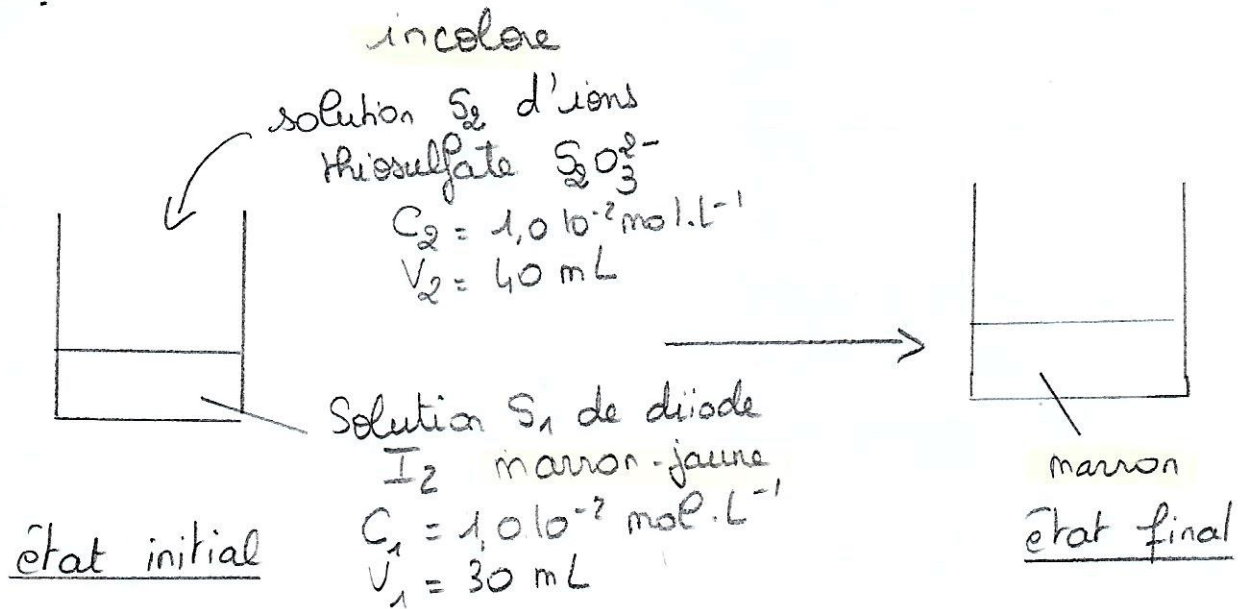 incolore
solution S₂ d'ions
thiosulfate S₂O₃²⁻
C₂ = 1,0 10⁻² mol.L⁻¹
V₂ = 40 mL
Solution S₁ de diiode
I₂ marron-jaune
C₁ = 1,0 10⁻² mol.L⁻¹
V₁ = 30 mL
état initial
marron
état final